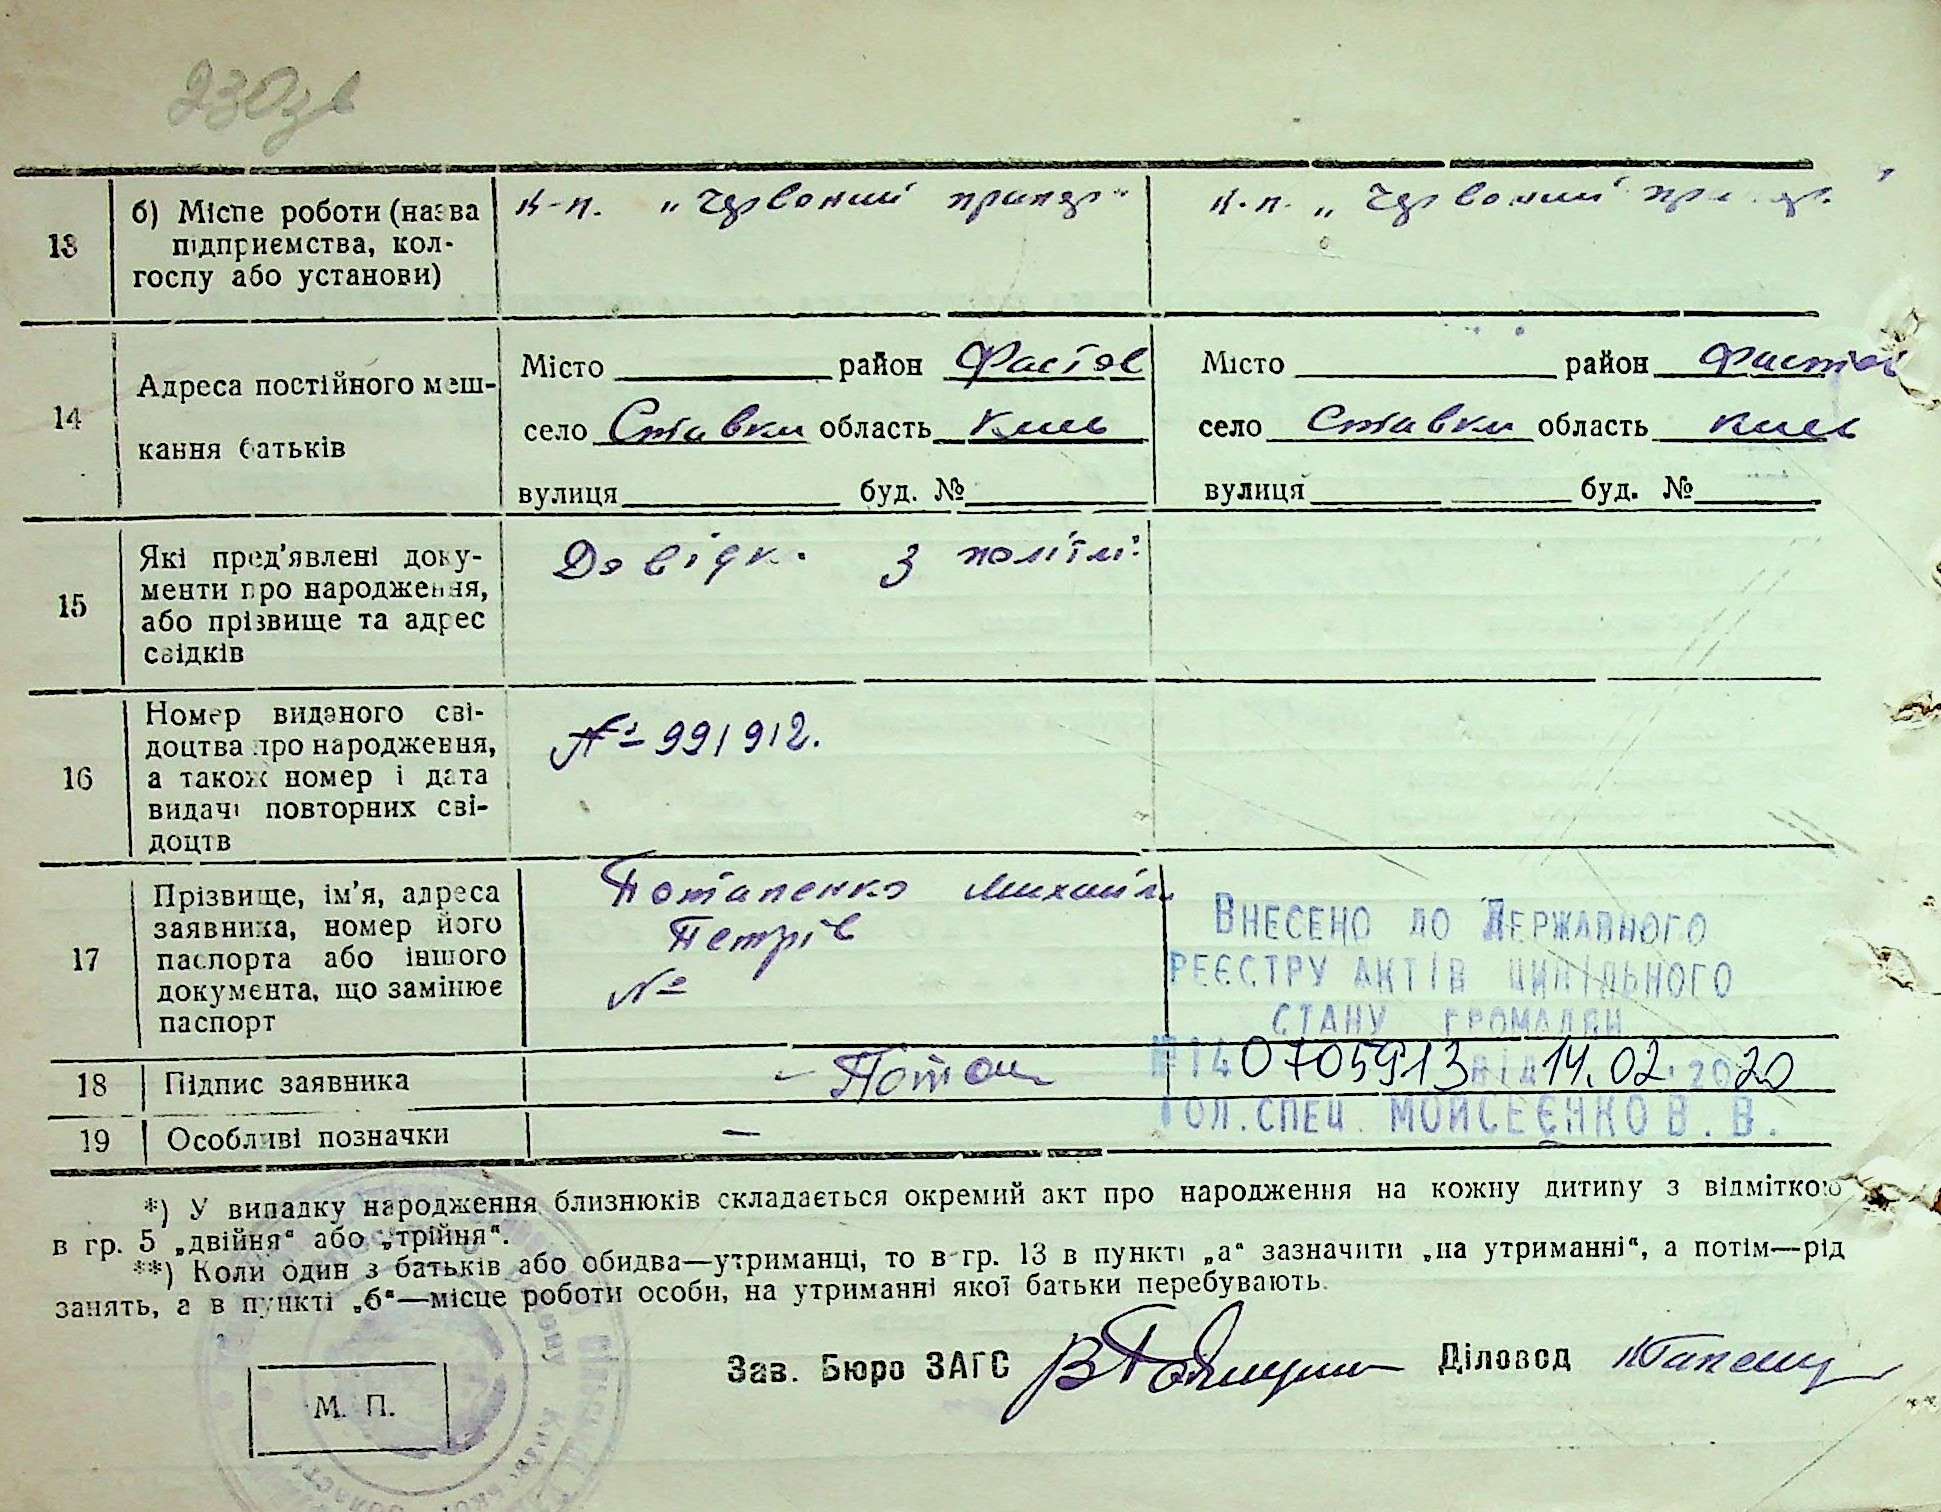 230зв
13 б) Місце роботи (назва підприємства, колгоспу або установи) к-п. „Червоний прапор“ к.п. „Червоний прапор“
14 Адреса постійного меш-
кання батьків
Місто район Фастов Місто район Фастов
село Ставки область Киев село Ставки область Киев
вулиця буд. № вулиця буд. №
15 Які пред'явлені доку-
менти про народження,
або прізвище та адрес
свідків
Довідк. з
16 Номер виданого сві-
доцтва про народження,
а також номер і дата
видачі повторних сві-
доцтв
№ 991912.
17 Прізвище, ім'я, адреса
заявника, номер його
паспорта або іншого
документа, що замінює
паспорт
Потапенко Михайло
Петрів
№
Внесено до Державного
реєстру актів цивільного
стану громадян
№ 140705913 від 14.02.2020
Гол. спец. Мойсеєнко В. В.
18 Підпис заявника – Потап
19 Особливі позначки —
*) У випадку народження близнюків складається окремий акт про народження на кожну дитину з відміткою
в гр. 5 „двійня“ або „трійня“.
**) Коли один з батьків або обидва—утриманці, то в гр. 13 в пункті „а“ зазначити „на утриманні“, а потім—рід
занять, а в пункті „б“—місце роботи особи, на утриманні якої батьки перебувають.
Зав. Бюро ЗАГС Діловод
М. П.